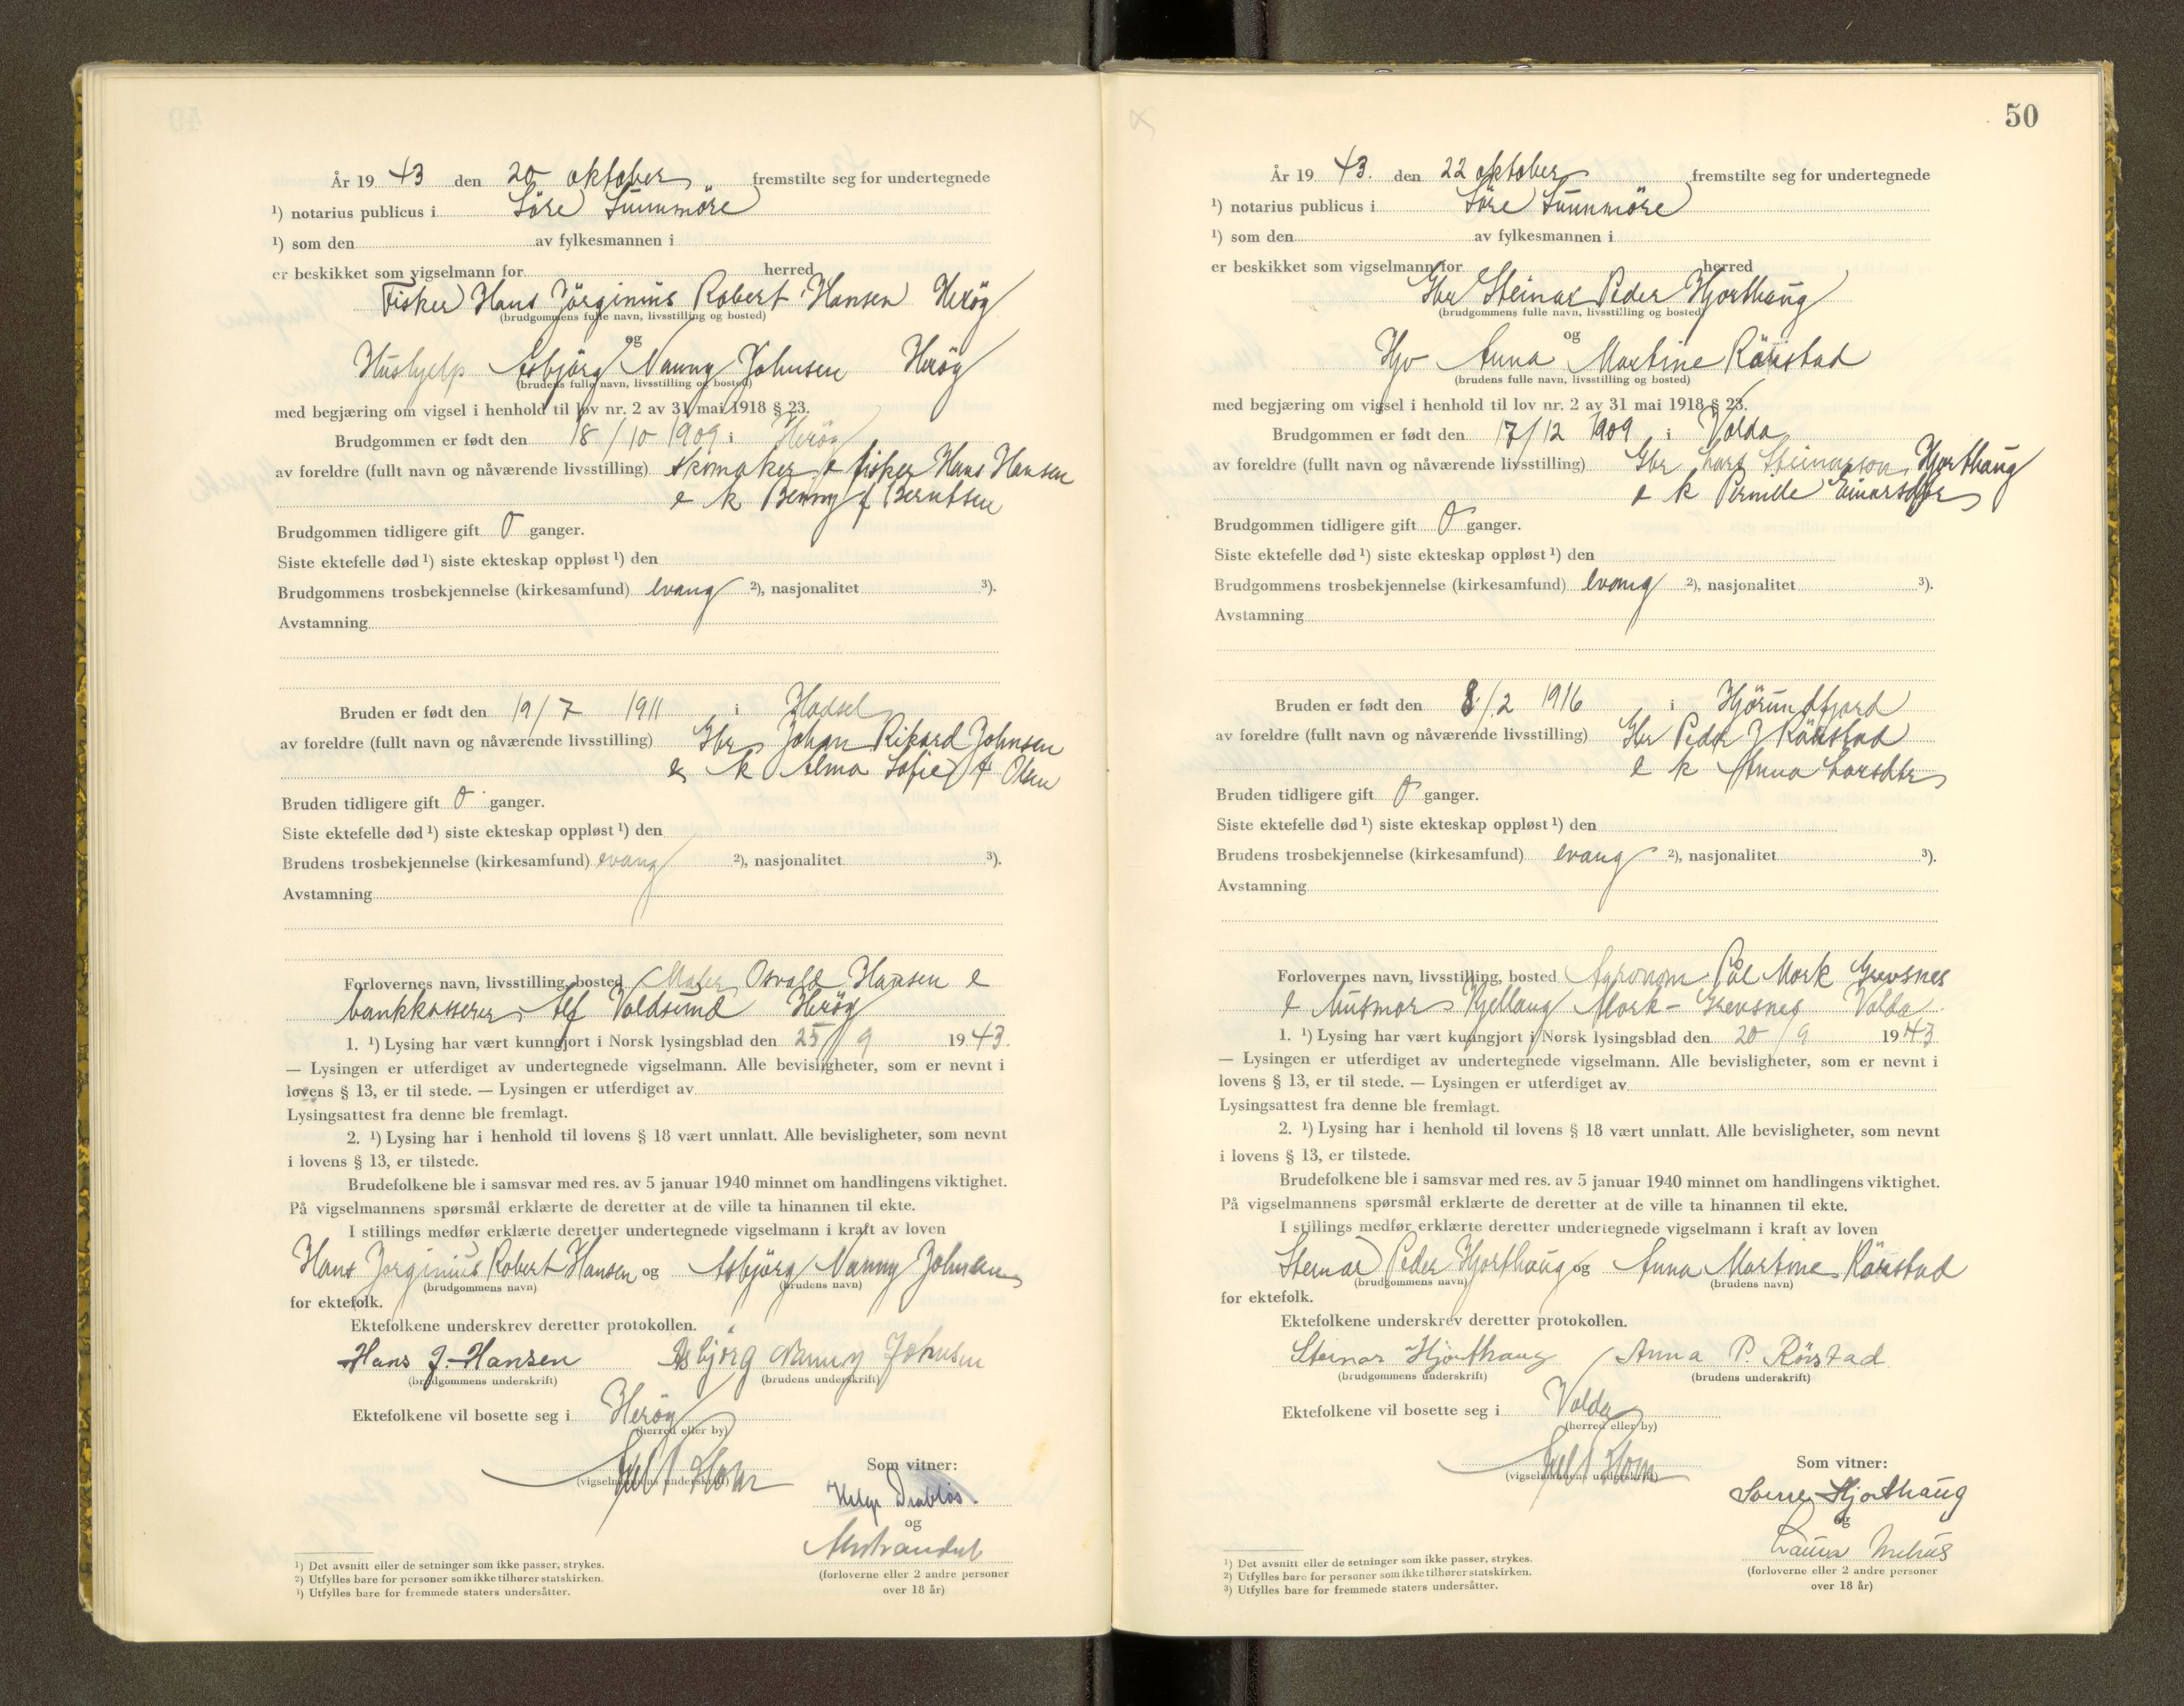 År 19 43 den 20 oktober fremstilte seg for undertegnede
¹) notarius publicus i Söre Sunnmöre
¹) som den av fylkesmannen i
er beskikket som vigselmann for herred
Fisker Hans Jörginius Robert Hansen Heröy
(brudgommens fulle navn, livsstilling og bosted)
og
Hushjelp Asbjörg Nanny Johnsen Heröy
(brudens fulle navn, livsstilling og bosted)
med begjæring om vigsel i henhold til lov nr. 2 av 31 mai 1918 § 23.
Brudgommen er født den 18/10 1909 i Heröy
av foreldre (fullt navn og nåværende livsstilling) skomaker & fisker Hans Hansen
e k Benny f Berntsen
Brudgommen tidligere gift 0 ganger.
Siste ektefelle død ¹) siste ekteskap oppløst ¹) den
Brudgommens trosbekjennelse (kirkesamfund) evang ²), nasjonalitet ³).
Avstamning
Bruden er født den 19/7 1911 i Hadsel
av foreldre (fullt navn og nåværende livsstilling) Gbr Johan Rikard Johnsen
e k Alma Sofie f Olsen
Bruden tidligere gift 0 ganger.
Siste ektefelle død ¹) siste ekteskap oppløst ¹) den
Brudens trosbekjennelse (kirkesamfund) evang ²), nasjonalitet ³).
Avstamning
Forlovernes navn, livsstilling, bosted Maler Osvald Hansen e
bankkasserer Alf Voldsund Heröy
1. ¹) Lysing har vært kunngjort i Norsk lysingsblad den 25/9 1943.
— Lysingen er utferdiget av undertegnede vigselmann. Alle bevisligheter, som er nevnt i
lovens § 13, er til stede. — Lysingen er utferdiget av
Lysingsattest fra denne ble fremlagt.
2. ¹) Lysing har i henhold til lovens § 18 vært unnlatt. Alle bevisligheter, som nevnt
i lovens § 13, er tilstede.
Brudefolkene ble i samsvar med res. av 5 januar 1940 minnet om handlingens viktighet.
På vigselmannens spørsmål erklærte de deretter at de ville ta hinannen til ekte.
I stillings medfør erklærte deretter undertegnede vigselmann i kraft av loven
Hans Jorginius Robert Hansen og Asbjörg Nanny Johnsen
(brudgommens navn) (brudens navn)
for ektefolk.
Ektefolkene underskrev deretter protokollen.
Hans J. Hansen Asbjörg Nanny Johnsen
(brudgommens underskrift) (brudens underskrift)
Ektefolkene vil bosette seg i Heröy
(herred eller by)
Som vitner:
(vigselmannens underskrift)
Helge Drabløs.
og
(forloverne eller 2 andre personer
over 18 år)
¹) Det avsnitt eller de setninger som ikke passer, strykes.
²) Utfylles bare for personer som ikke tilhører statskirken.
³) Utfylles bare for fremmede staters undersåtter.
50
År 19 43. den 22 oktober fremstilte seg for undertegnede
¹) notarius publicus i Söre Sunnmöre
¹) som den av fylkesmannen i
er beskikket som vigselmann for herred
Gbr Steinar Peder Hjorthaug
(brudgommens fulle navn, livsstilling og bosted)
og
Hjv Anna Martine Rörstad
(brudens fulle navn, livsstilling og bosted)
med begjæring om vigsel i henhold til lov nr. 2 av 31 mai 1918 § 23.
Brudgommen er født den 17/12 1909 i Volda
av foreldre (fullt navn og nåværende livsstilling) Gbr Lars Steinarson Hjorthaug
e k Pernille Einarsdtr
Brudgommen tidligere gift 0 ganger.
Siste ektefelle død ¹) siste ekteskap oppløst ¹) den
Brudgommens trosbekjennelse (kirkesamfund) evang ²), nasjonalitet ³).
Avstamning
Bruden er født den 8/2 1916 i Hjörundfjord
av foreldre (fullt navn og nåværende livsstilling) Gbr Peder J Rörstad
e k Anna Larsdtr
Bruden tidligere gift 0 ganger.
Siste ektefelle død ¹) siste ekteskap oppløst ¹) den
Brudens trosbekjennelse (kirkesamfund) evang ²), nasjonalitet ³).
Avstamning
Forlovernes navn, livsstilling, bosted Agronom Pål Mork Grevsnes
e Husmor Kjellaug Mork-Grevsnes Volda.
1. ¹) Lysing har vært kunngjort i Norsk lysingsblad den 20/9 1943
— Lysingen er utferdiget av undertegnede vigselmann. Alle bevisligheter, som er nevnt i
lovens § 13, er til stede. — Lysingen er utferdiget av
Lysingsattest fra denne ble fremlagt.
2. ¹) Lysing har i henhold til lovens § 18 vært unnlatt. Alle bevisligheter, som nevnt
i lovens § 13, er tilstede.
Brudefolkene ble i samsvar med res. av 5 januar 1940 minnet om handlingens viktighet.
På vigselmannens spørsmål erklærte de deretter at de ville ta hinannen til ekte.
I stillings medfør erklærte deretter undertegnede vigselmann i kraft av loven
Steinar Peder Hjorthaug og Anna Martine Rörstad
(brudgommens navn) (brudens navn)
for ektefolk.
Ektefolkene underskrev deretter protokollen.
Steinar Hjorthaug Anna P. Rörstad
(brudgommens underskrift) (brudens underskrift)
Ektefolkene vil bosette seg i Volda
(herred eller by)
Som vitner:
(vigselmannens underskrift)
Hjorthaug
og
(forloverne eller 2 andre personer
over 18 år)
¹) Det avsnitt eller de setninger som ikke passer, strykes.
²) Utfylles bare for personer som ikke tilhører statskirken.
³) Utfylles bare for fremmede staters undersåtter.